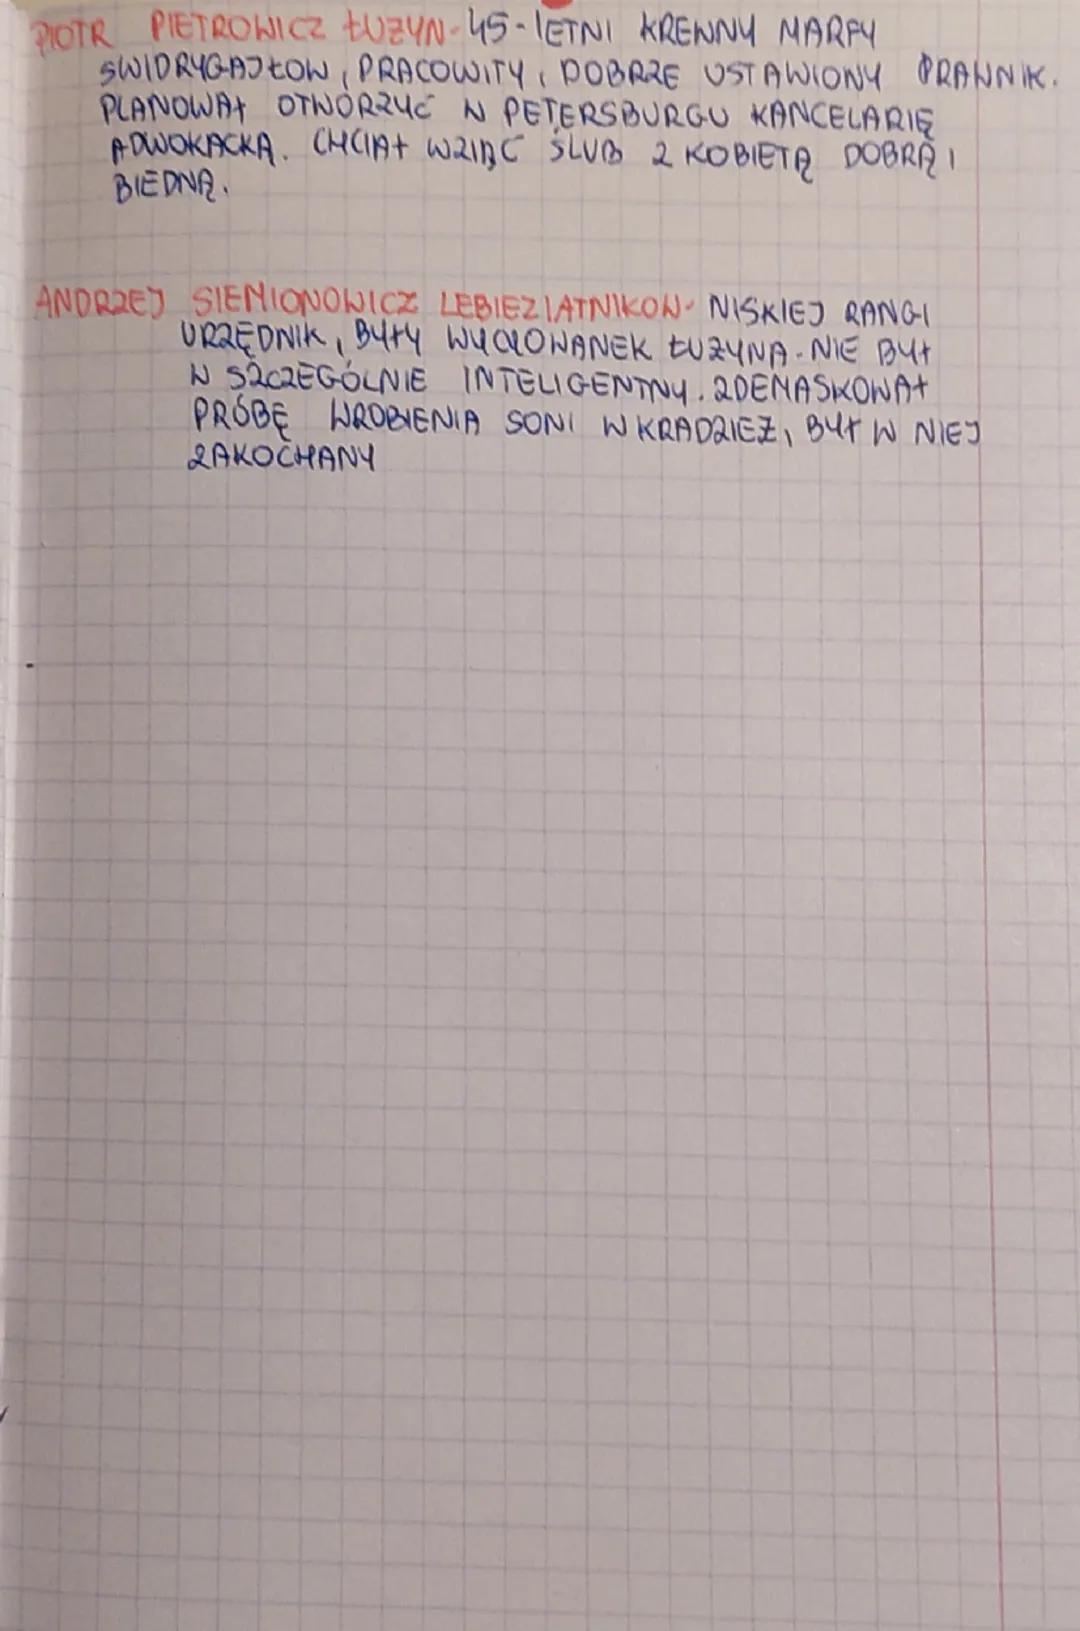 PIOTR PIETROWICZ ŁUŻYN - 45-lETNI KREWNY MARFY
SWIDRYGAJŁOW, PRACOWITY, DOBRZE USTAWIONY PRAWNIK.
PLANOWAŁ OTWÓRZYĆ W PETERSBURGU KANCELARIĘ
ADWOKACKĄ. CHCIAŁ WZIĄC ŚLUB Z KOBIETĄ DOBRĄ I
BIEDNĄ.
ANDRZEJ SIEMIONOWICZ LEBIEZIATNIKOW - NISKIEJ RANGI
URZĘDNIK, BYŁY WYCHOWANEK ŁUŻYNA. NIE BYŁ
W SZCZEGÓLNIE INTELIGENTNY. ZDEMASKOWAŁ
PRÓBĘ WROBIENIA SONI W KRADZIEŻ, BYŁ W NIEJ
ZAKOCHANY